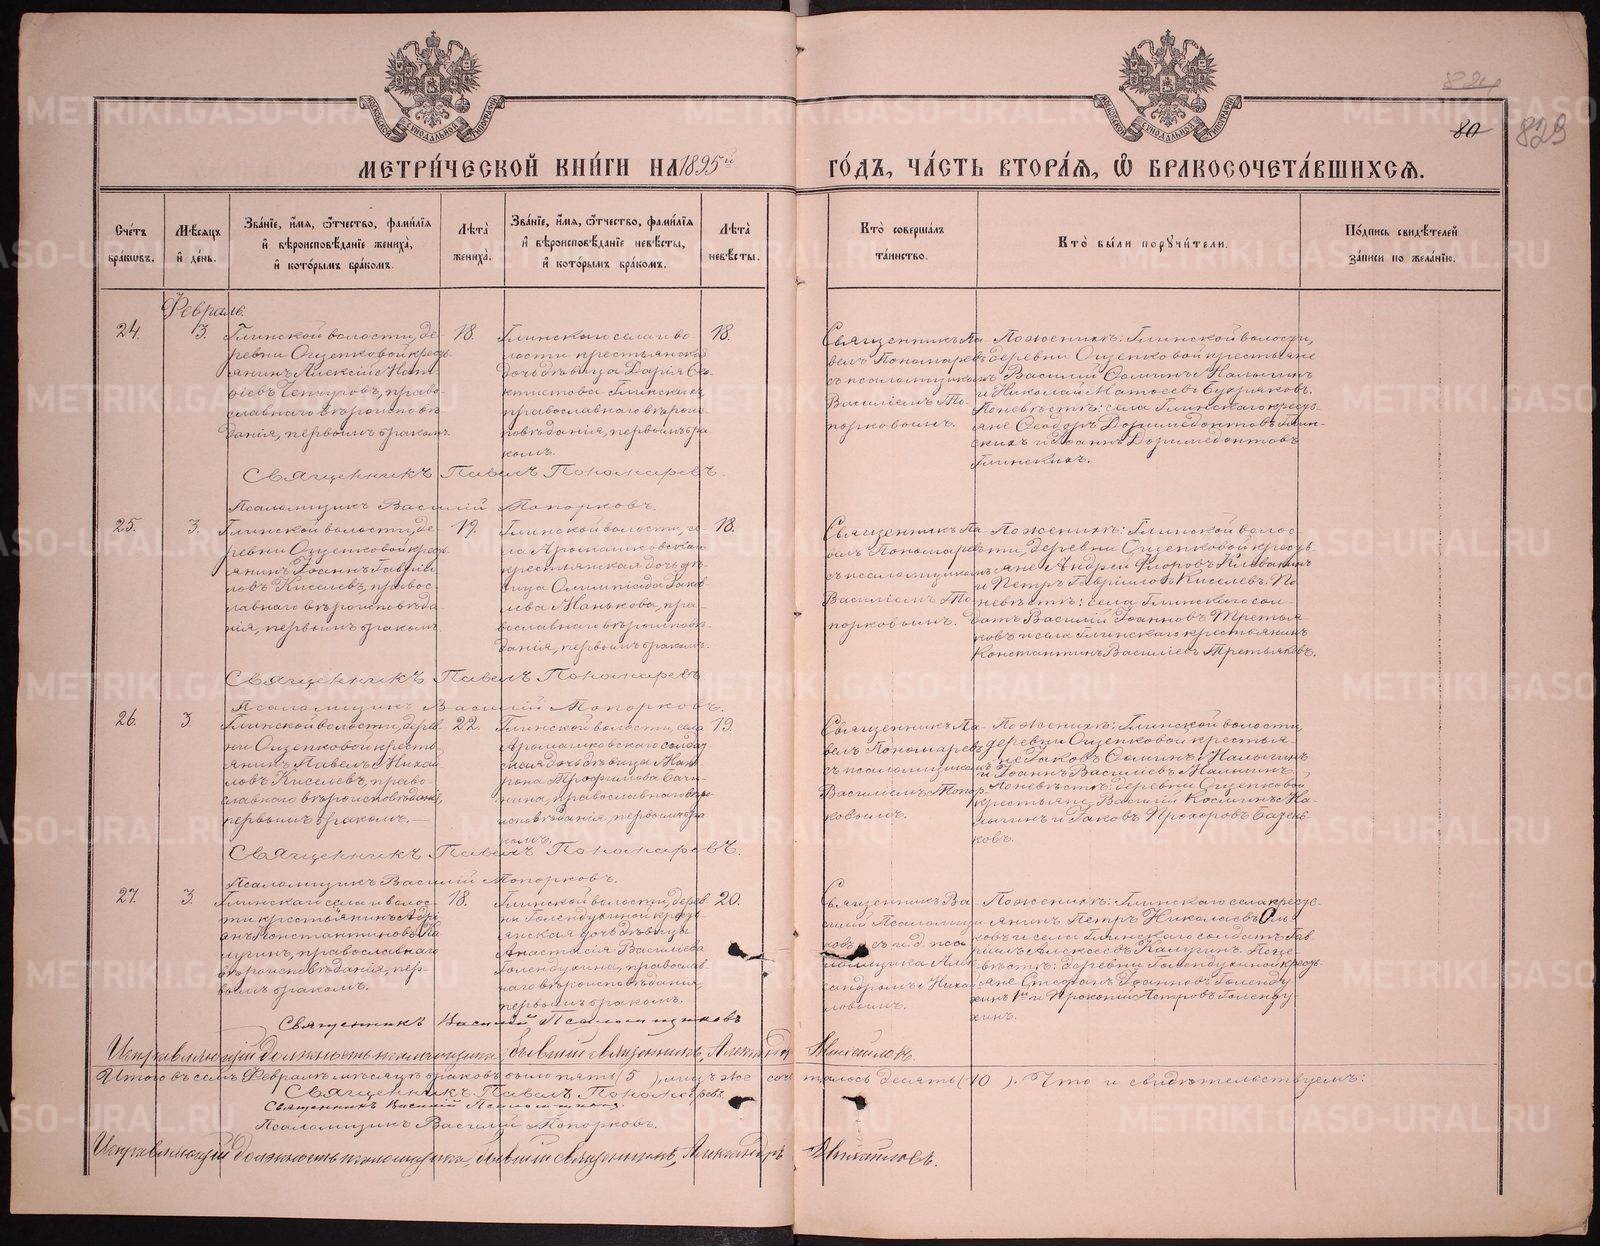 829
80
МЕТРИ́ЧЕСКОЙ КНИ́ГИ НА 1895й ГО́ДЪ, ЧА́СТЬ ВТОРА́Я, Ѿ БРАКОСОЧЕТА́ВШИХСЯ.
Сче́тъ бра́ковъ.
Мѣ́сяцъ и҆ де́нь.
Зва́нїе, и҆́мя, ѻ҆́тчество, фами́лїя и҆ вѣроисповѣ́данїе жениха̀, и҆ кото́рымъ бра́комъ.
Лѣ́та жениха̀.
Зва́нїе, и҆́мя, ѻ҆́тчество, фами́лїя и҆ вѣроисповѣ́данїе невѣ́сты, и҆ кото́рымъ бра́комъ.
Лѣ́та невѣ́сты.
Кто̀ соверша́лъ та́инство.
Кто̀ бы́ли поручи́тели.
По́дпись свидѣ́телей за́писи по жела́нїю.
Февраль.
24.
3.
Глинской волости, де-
ревни Ощепковой кресть-
янинъ Алексій
Чепчуговъ, право-
славнаго вѣроисповѣ-
данія, первымъ бракомъ.
18.
Глинскаго села и во-
лости крестьянская
дочь дѣвица Дарія
Глинскихъ,
православнаго вѣроис-
повѣданія, первымъ бра-
комъ.
18.
Священникъ Па-
велъ Пономаревъ
съ псаломщикомъ
Василіемъ То-
порковымъ.
По женихѣ: Глинской волости,
деревни Ощепковой крестьяне
Василій Ѳоминъ Налынинъ
и Николай Матѳеевъ Бухряковъ.
По невѣстѣ: села Глинскаго кресть-
яне Ѳеодоръ Доримедонтовъ Глин-
скихъ и Іоаннъ Доримедонтовъ
Глинскихъ.
Священникъ Павелъ Пономаревъ.
Псаломщикъ Василій Топорковъ.
25.
3.
Глинской волости, де-
ревни Ощепковой кресть-
янинъ Іоаннъ Гавріи-
ловъ Киселевъ, правос-
лавнаго вѣроисповѣда-
нія, первымъ бракомъ
19.
Глинской волости, се-
ла Арамашковскаго
крестьянская дочь дѣ-
вица Олимпіада Іаков-
лева Манькова, пра-
вославнаго вѣроисповѣ-
данія, первымъ бракомъ.
18.
Священникъ Па-
велъ Пономаревъ
съ псаломщикомъ
Василіемъ То-
порковымъ.
По женихѣ: Глинской волос-
ти, деревни Ощепковой кресть-
яне Андрей Флоровъ
и Петръ Гавріиловъ Киселевъ. По
невѣстѣ: села Глинскаго сол-
датъ Василій Іоанновъ Третья-
ковъ и села Глинскаго крестьянинъ
Константинъ Василіевъ Третьяковъ.
Священникъ Павелъ Пономаревъ
Псаломщикъ Василій Топорковъ.
26.
3.
Глинской волости, дерев-
ни Ощепковой кресть-
янинъ Павелъ Михаи-
ловъ Киселевъ, право-
славнаго вѣроисповѣданія,
первымъ бракомъ.
22.
Глинской волости, села
Арамашковскаго солдат-
ская дочь дѣвица Мат-
рона Трофимова Бачи-
нина, православнаго вѣро-
исповѣданія, первымъ бра-
комъ.
19.
Священникъ Па-
велъ Пономаревъ
съ псаломщикомъ
Василіемъ Топор-
ковымъ.
По женихѣ: Глинской волости
деревни Ощепковой крестья-
не Іаковъ Ѳоминъ Налынинъ
и Іоаннъ Василіевъ Налынинъ.
По невѣстѣ: деревни Ощепковой
крестьяне Василій Косминъ На-
лынинъ и Іаковъ Прохоровъ
Священникъ Павелъ Пономаревъ.
Псаломщикъ Василій Топорковъ.
27.
3.
Глинскаго села и волос-
ти крестьянинъ Адрі-
анъ Константиновъ Ка-
лугинъ, православнаго
вѣроисповѣданія, пер-
вымъ бракомъ.
18.
Глинской волости, дерев-
ни Голендухиной кресть-
янская дочь дѣвица
Анастасія Василіева
Голендухина, православ-
наго вѣроисповѣданія,
первымъ бракомъ.
20.
Священникъ Ва-
силій Псаломщи-
ковъ съ и.д. пса-
ломщика Алек-
сандромъ Михаи-
ловымъ.
По женихѣ: Глинскаго села кресть-
янинъ Петръ Николаевъ
и села Глинскаго солдатъ Гав-
ріилъ Алексѣевъ Калугинъ. По не-
вѣстѣ: деревни Голендухиной кресть-
яне Стефанъ Іоанновъ Голенду-
хинъ 1й и Прокопій Петровъ Голенду-
хинъ.
Священникъ Василій Псаломщиковъ
Исправляющій должность псаломщика, бывшій священникъ, Александръ Михайловъ
Итого въ семъ Февралѣ мѣсяцѣ браковъ было пять (5), лицъ же сочеталось десять (10). Что и свидѣтельствуемъ:
Священникъ Павелъ Пономаревъ.
Священникъ Василій Псаломщиковъ.
Псаломщикъ Василій Топорковъ.
Исправляющій должность псаломщика, бывшій священникъ, Александръ Михайловъ.
METRIKI.GASO-URAL.RU